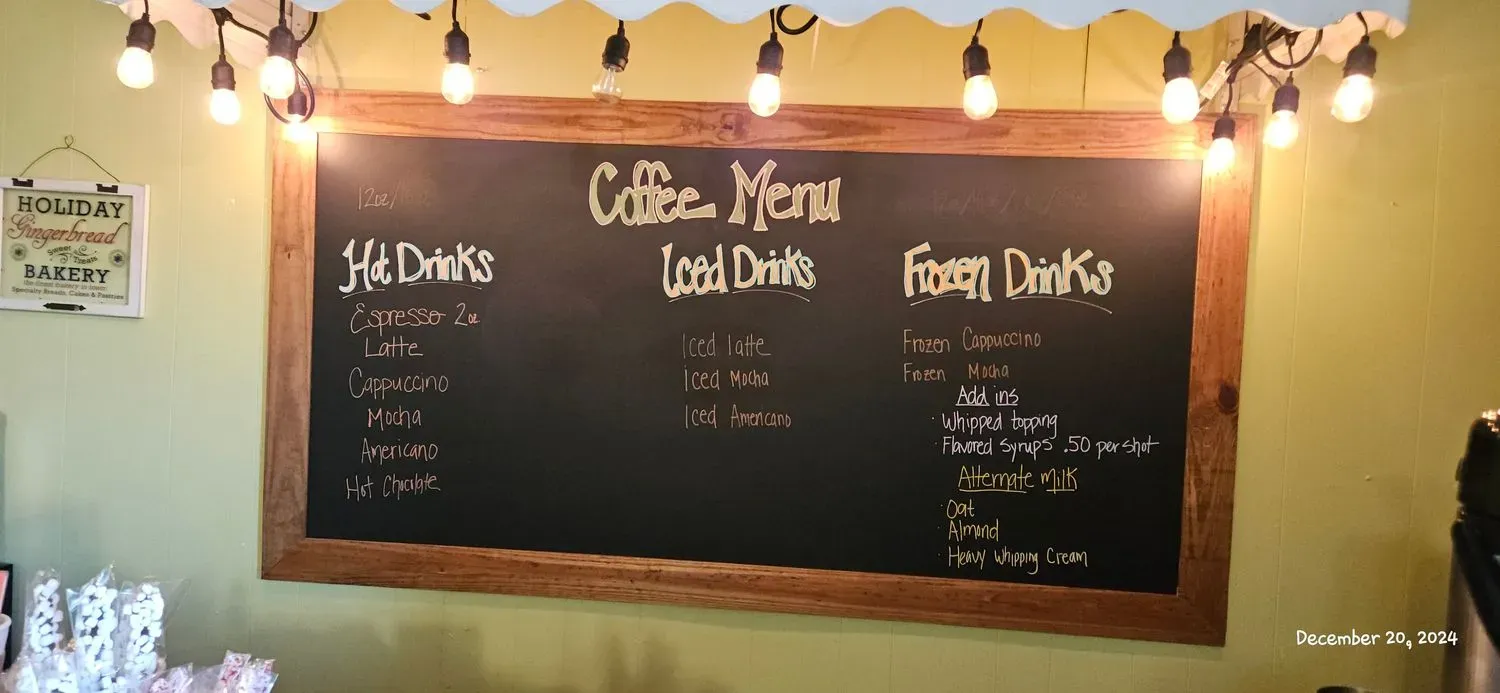 Coffee Menu
12oz/
Hot Drinks
Espresso 2oz.
Latte
Cappuccino
Mocha
Americano
Hot Chocolate
Iced Drinks
Iced latte
Iced Mocha
Iced Americano
Frozen Drinks
Frozen Cappuccino
Frozen Mocha
Add ins
· Whipped topping
· Flavored Syrups .50 per shot
Alternate Milk
· Oat
· Almond
· Heavy Whipping Cream
HOLIDAY
Gingerbread
Sweet Treats
BAKERY
the finest bakery in town
Specialty Breads, Cakes & Pastries
December 20, 2024